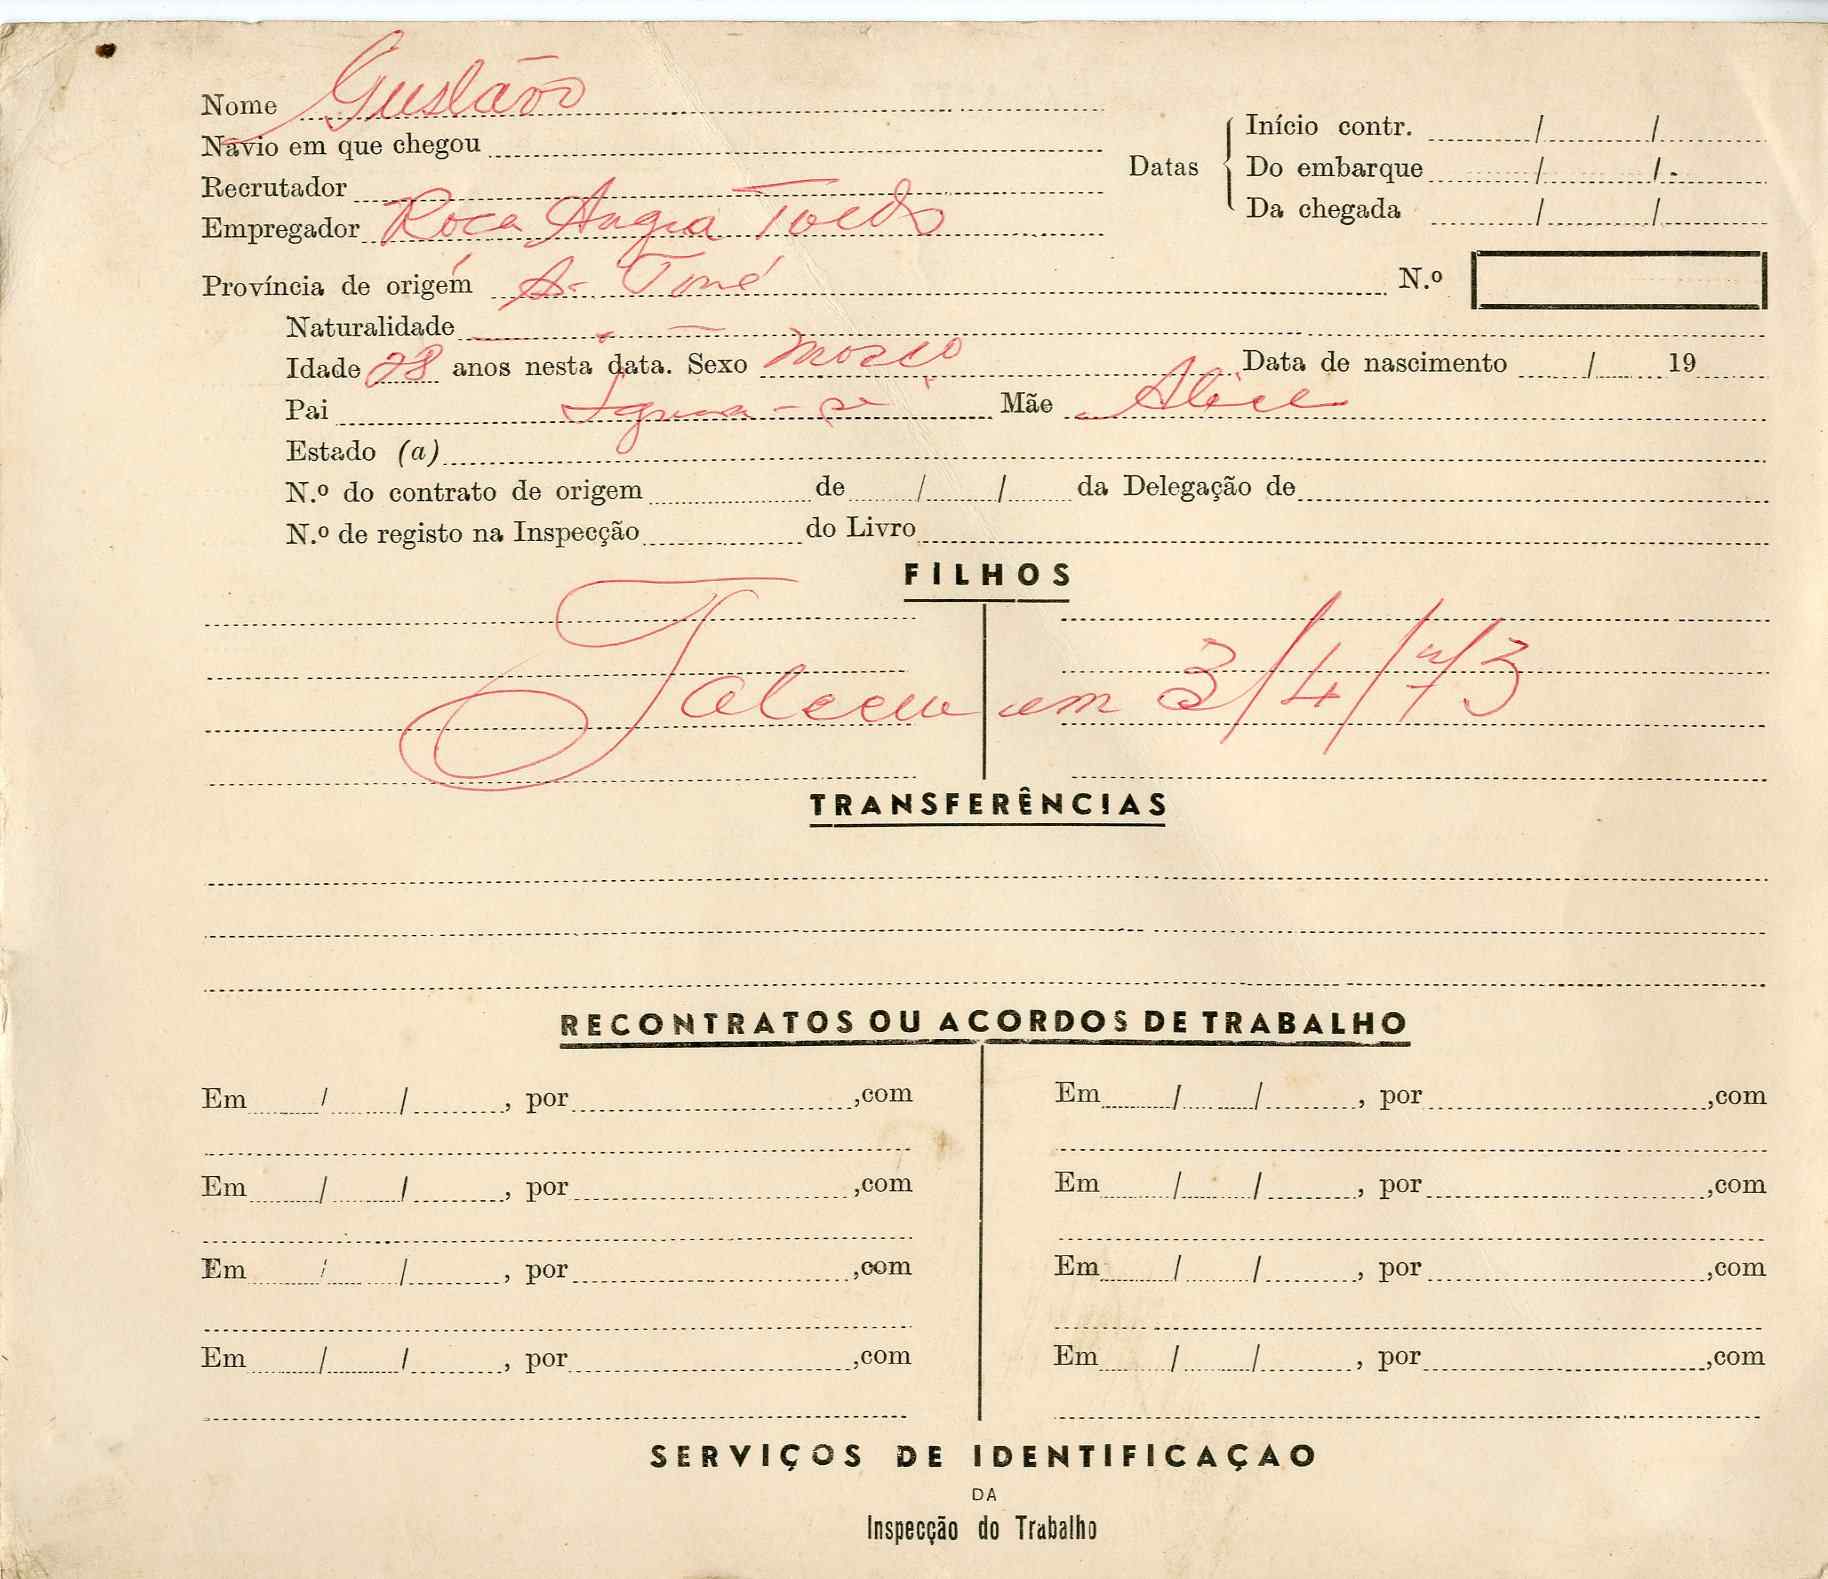 Nome Gustavo
Navio em que chegou
Recrutador
Empregador Roca Angra Toldo
Datas
Início contr. / /
Do embarque / /
Da chegada / /
Província de origem S. Tomé
N.º
Naturalidade
Idade 28 anos nesta data. Sexo masco Data de nascimento / 19
Pai Ignora-se Mãe Alice
Estado (a)
N.º do contrato de origem de / / da Delegação de
N.º de registo na Inspecção do Livro
FILHOS
Faleceu em 3/4/73
TRANSFERÊNCIAS
RECONTRATOS OU ACORDOS DE TRABALHO
Em / / , por ,com Em / / , por ,com
Em / / , por ,com Em / / , por ,com
Em / / , por ,com Em / / , por ,com
Em / / , por ,com Em / / , por ,com
SERVIÇOS DE IDENTIFICAÇAO
DA
Inspecção do Trabalho